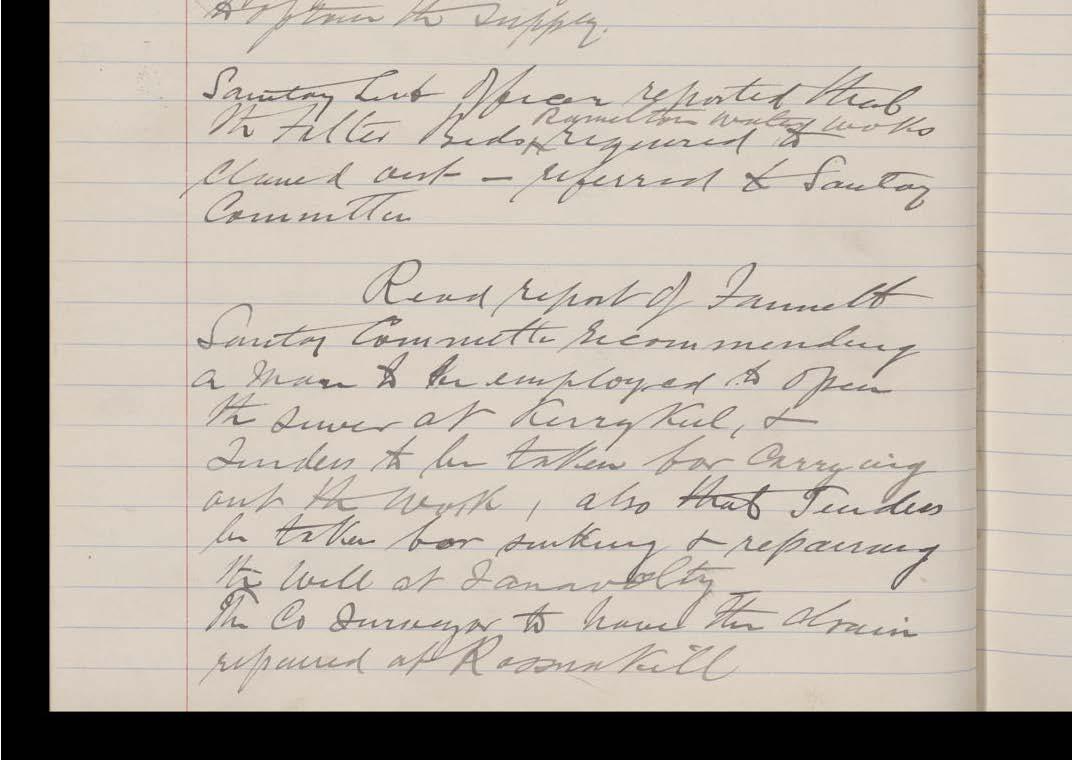 the supply.
Sanitary Sub Officer reported that
the Filter Beds Ramelton water works required to
cleaned out - referred to Sanitary
Committee
Read report of Fannett
Sanitary Committee recommending
a man to be employed to open
the sewer at Kerrykeel, &
Tenders to be taken for carrying
out the work, also that Tenders
be taken for sinking & repairing
the well at
The Co Surveyor to have the drain
repaired at Rossnakill